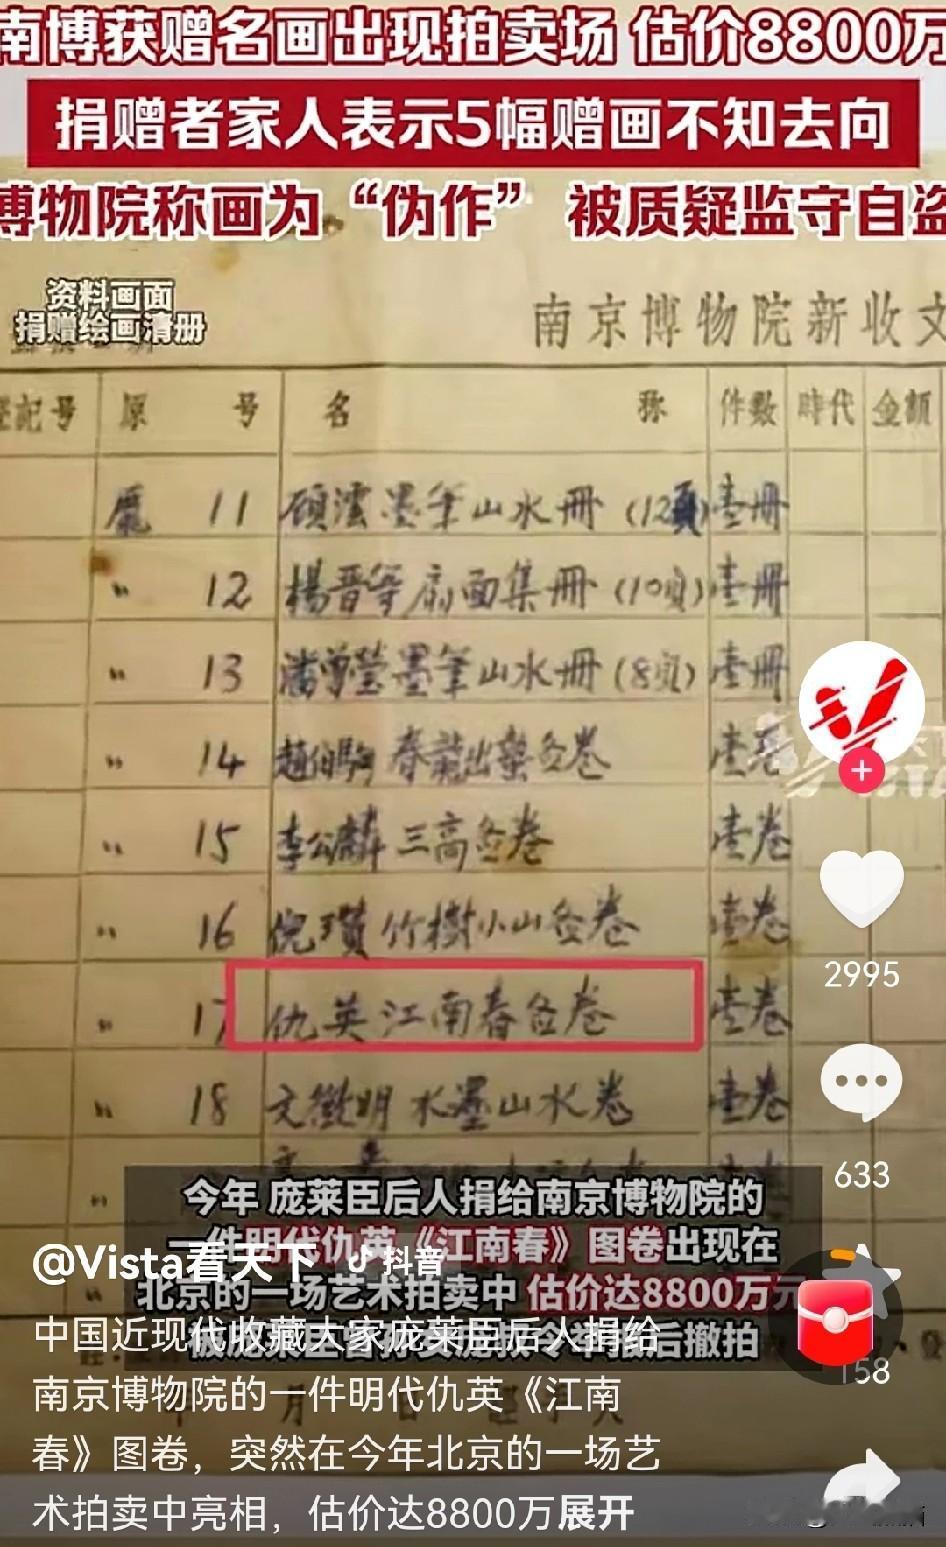 南博获赠名画出现拍卖场 估价8800万
捐赠者家人表示5幅赠画不知去向
博物院称画为“伪作” 被质疑监守自盗
资料画面
捐赠绘画清册
南京博物院新收文
登记号 原号 名称 件数 時代 金额
11 顾澐墨笔山水冊 (12頁) 壹冊
〃 12 楊晋等扇面集冊 (10頁) 壹冊
〃 13 潘曾瑩墨筆山水冊 (8頁) 壹冊
〃 14 趙伯驹 春龍出蟄图卷 壹卷
〃 15 李公麟 三高图卷 壹卷
〃 16 倪瓒 竹樹小山图卷 壹卷
〃 17 仇英 江南春图卷 壹卷
〃 18 文徵明 水墨山水卷 壹卷
2995
633
158
今年 庞莱臣后人捐给南京博物院的
一件明代仇英《江南春》图卷出现在
北京的一场艺术拍卖中 估价达8800万元
后撤拍
@Vista看天下 抖音
中国近现代收藏大家庞莱臣后人捐给
南京博物院的一件明代仇英《江南
春》图卷，突然在今年北京的一场艺
术拍卖中亮相，估价达8800万展开